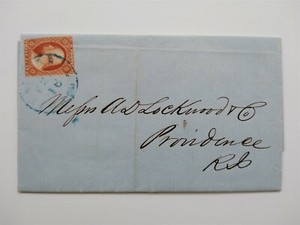 Messrs A D Lockwood & Co
Providence
R I